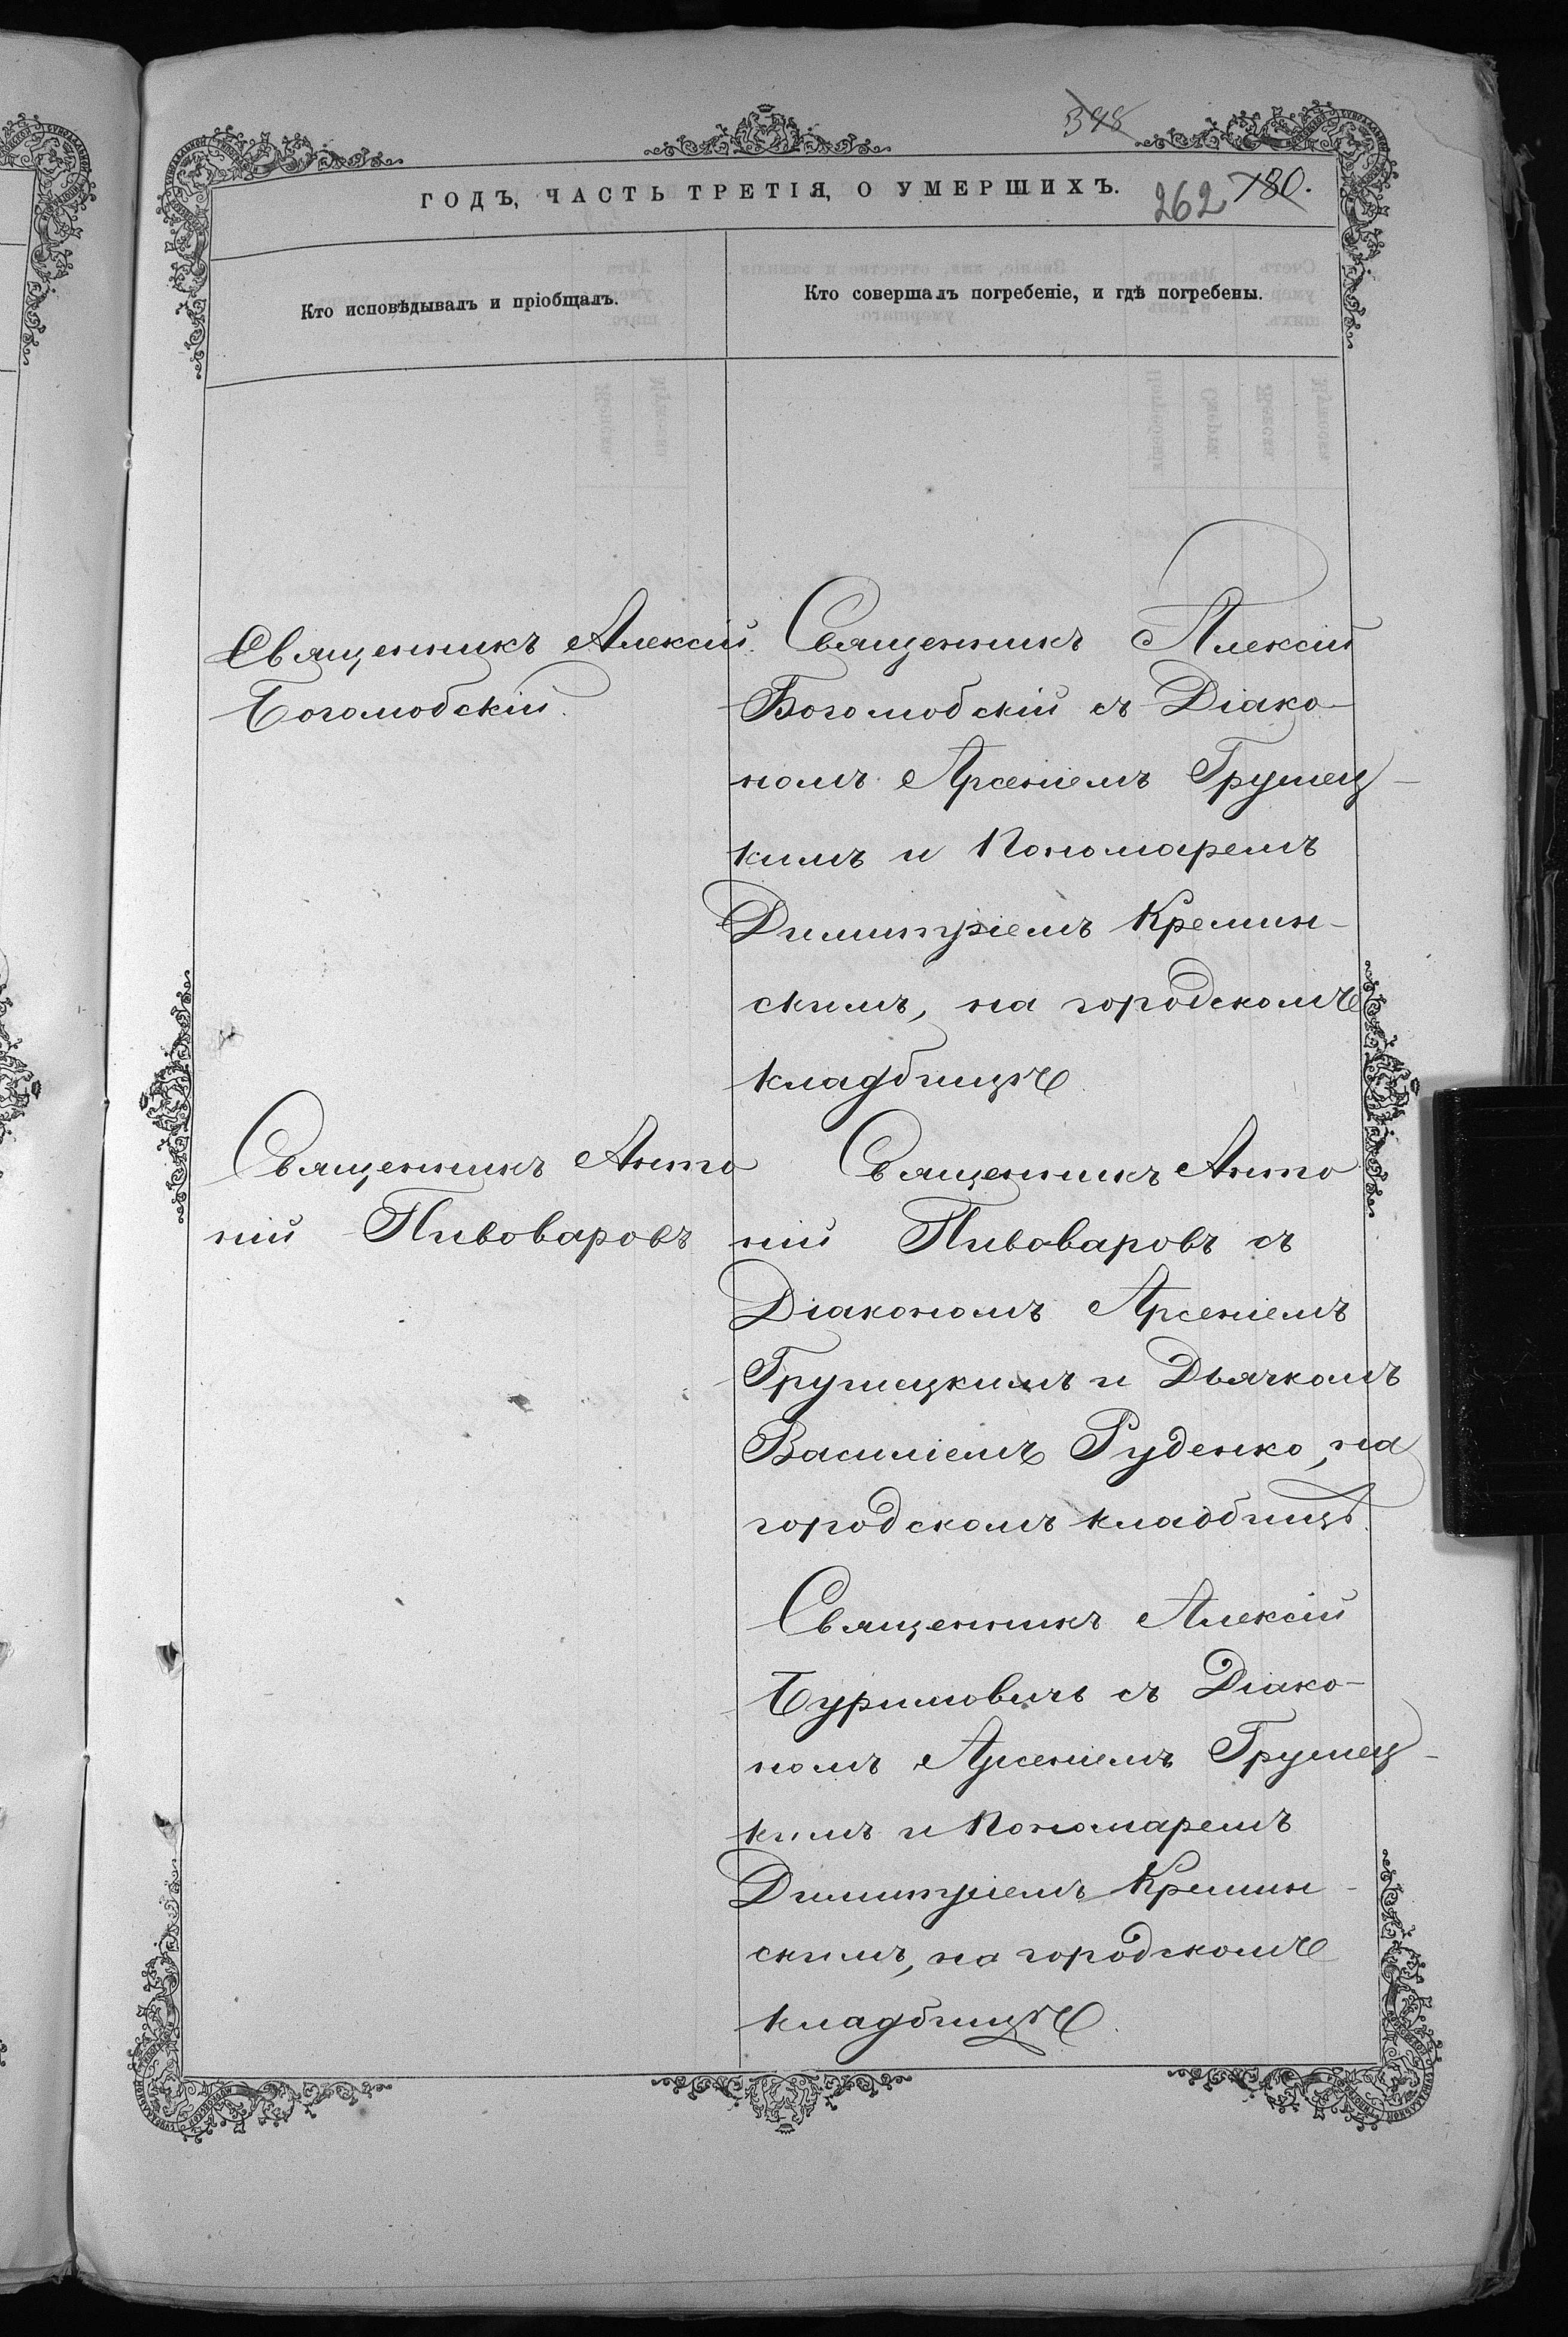 398
ГОДЪ, ЧАСТЬ ТРЕТІЯ, О УМЕРШИХЪ.
262 780.
Кто исповѣдывалъ и пріобщалъ.
Кто совершалъ погребеніе, и гдѣ погребены.
Священникъ Алексій
Боголюбскій.
Священникъ Алексій
Боголюбскій съ Діако-
номъ Арсеніемъ Грушец-
кимъ и Пономаремъ
Димитріемъ Кремин-
скимъ, на городскомъ
кладбищѣ
Священникъ Анто
ній Пивоваровъ
Священникъ Анто
ній Пивоваровъ съ
Діакономъ Арсеніемъ
Грушецкимъ и Дьячкомъ
Василіемъ Руденко, на
городскомъ кладбищѣ.
Священникъ Алексій
Буримовичъ съ Діако-
номъ Арсеніемъ Грушец-
кимъ и Пономаремъ
Димитріемъ Кремин-
скимъ, на городскомъ
кладбищѣ.